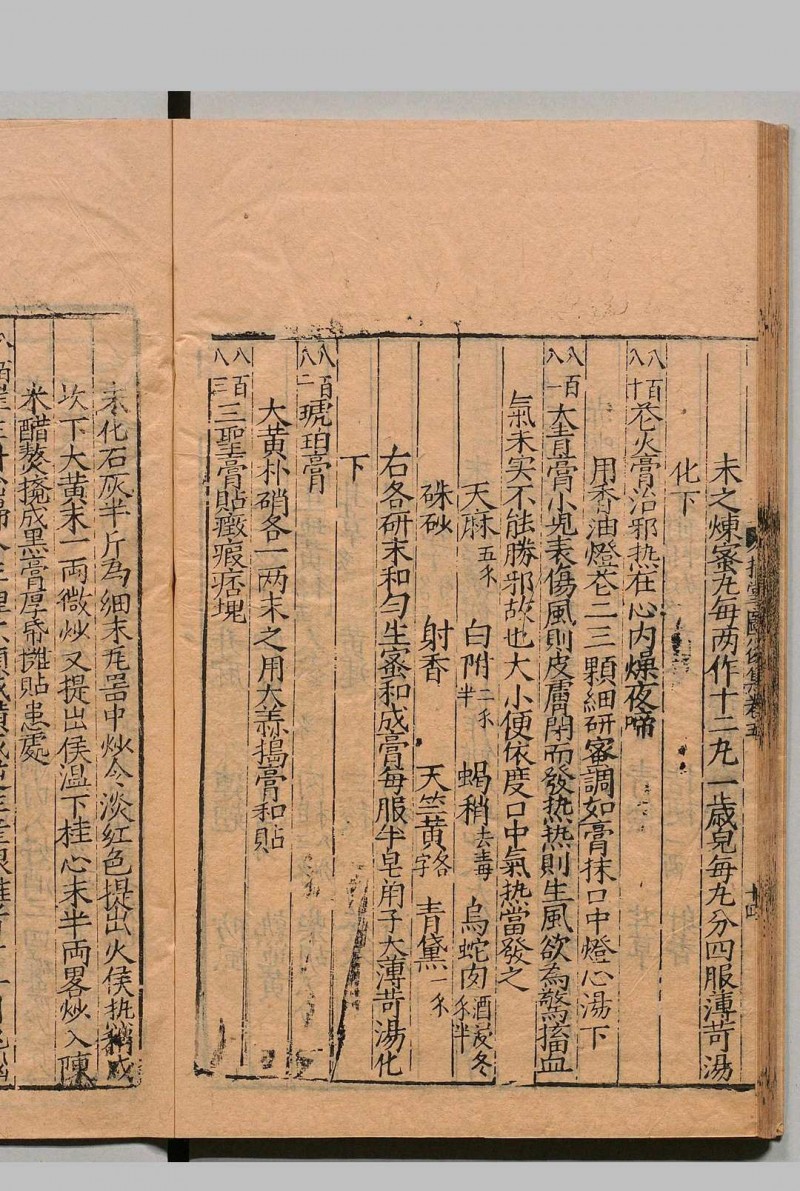 末之煉蜜丸每两作十二丸一歲兒每丸分四服薄苛湯
化下
八百八十 灯火膏治邪热在心内燥夜啼
用香油燈花二三顆細研蜜調如膏抹口中燈心湯下
八百八一 大青膏小児表傷風則皮膚閉而發热热則生風欲為驚搐血
氣未实不能勝邪故也大小便依度口中氣热當發之
天麻五分 白附二分半 蝎稍去毒 烏蛇肉酒浸冬分半
硃砂 射香 天竺黃各字 青黛一分
右各研末和匀生蜜和成膏每服半皂角子大薄苛湯化
下
八百八二 琥珀膏
大黄朴硝各一两末之用大蒜搗膏和貼
八百八三 三聖膏貼癥瘕痞塊
末化石灰半斤為細末瓦器中炒令淡红色提出火侯热稍减
次下大黄末一両微炒又提出侯温下桂心末半両畧炒入陳
米醋熬搅成黒膏厚帋攤貼患處